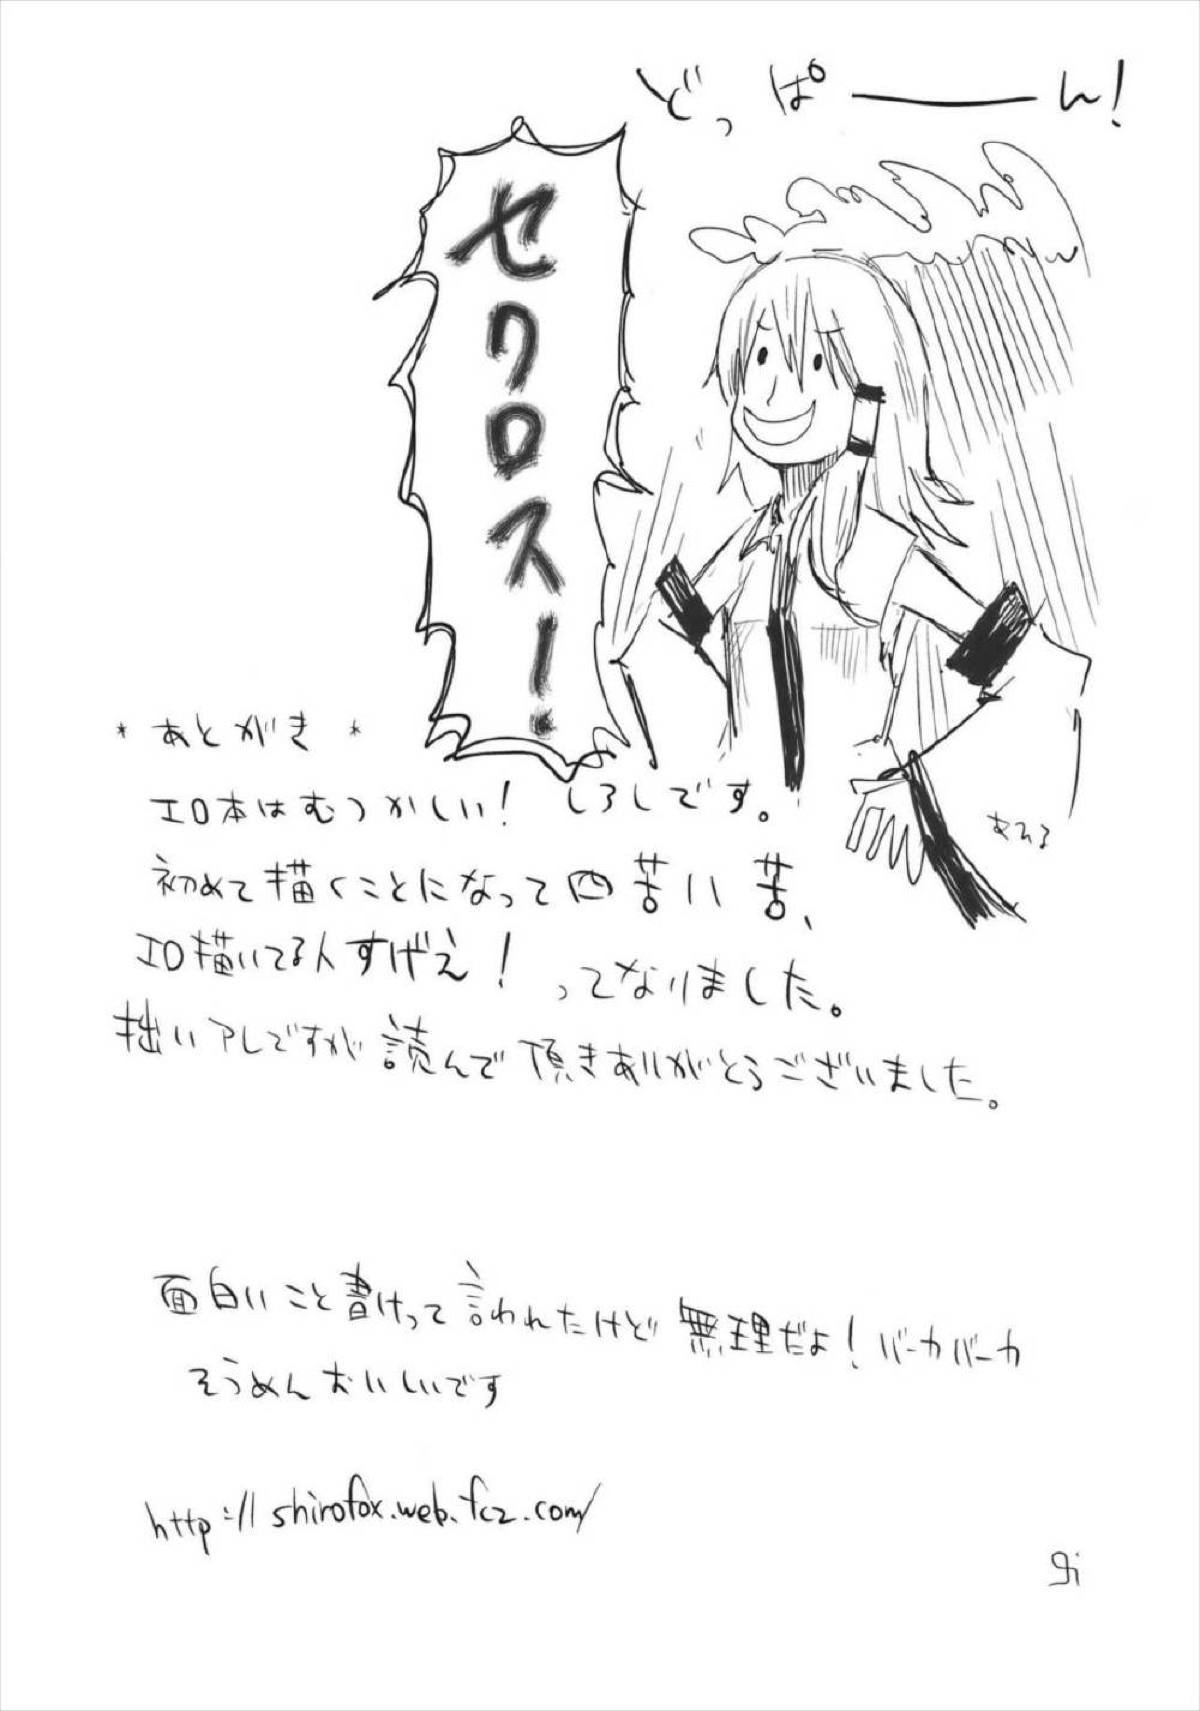 どっぱーーん!
セクロスー!
* あとがき *
エロ本はむつかしい! しろしです。
初めて描くことになって四苦八苦、
エロ描いてる人すげえ! ってなりました。
拙いアレですが読んで頂きありがとうございました。
面白いこと書けって言われたけど無理だよ!バーカバーカ
そうめんおいしいです
http://shirofox.web.fc2.com/